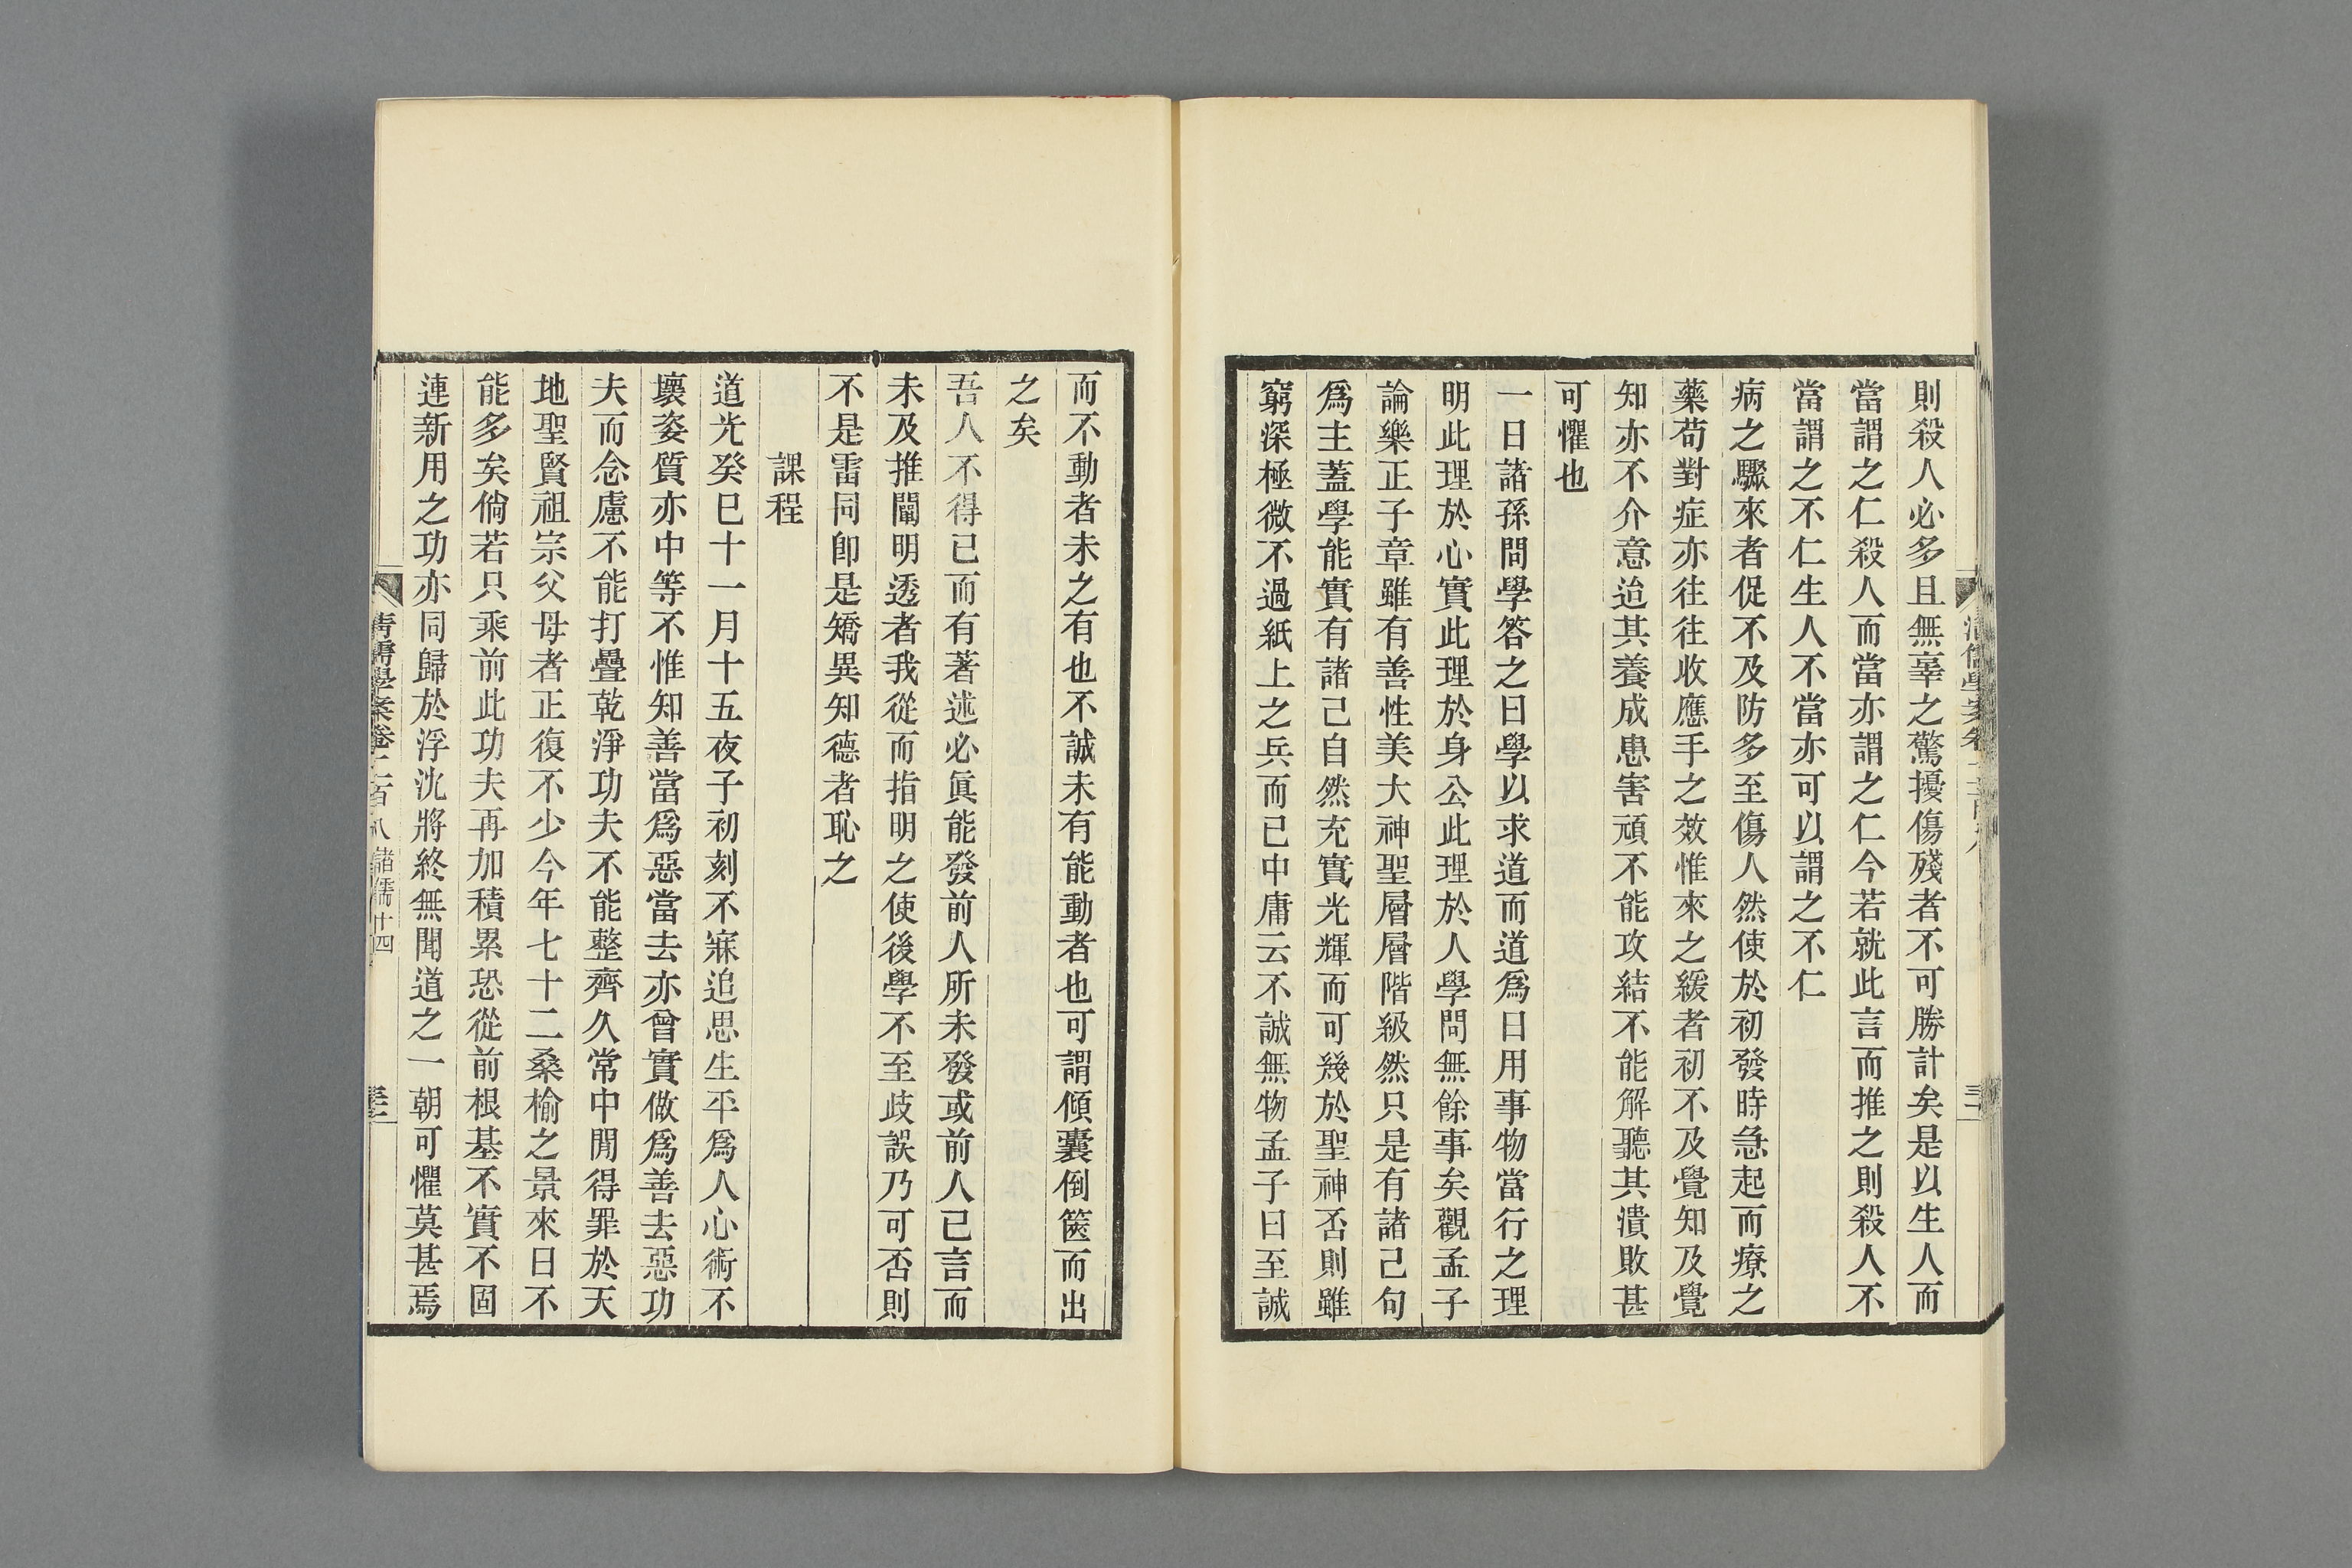 則殺人必多且無辜之驚擾傷殘者不可勝計矣是以生人而
當謂之仁殺人而當亦謂之仁今若就此言而推之則殺人不
當謂之不仁生人不當亦可以謂之不仁
病之驟來者促不及防多至傷人然使於初發時急起而療之
藥苟對症亦往往收應手之效惟來之緩者初不及覺知及覺
知亦不介意迨其養成患害頑不能攻結不能解聽其潰敗甚
可懼也
一日諸孫問學答之曰學以求道而道爲日用事物當行之理
明此理於心實此理於身公此理於人學問無餘事矣觀孟子
論樂正子章雖有善性美大神聖層層階級然只是有諸己句
爲主蓋學能實有諸己自然充實光輝而可幾於聖神否則雖
窮深極微不過紙上之兵而已中庸云不誠無物孟子曰至誠
而不動者未之有也不誠未有能動者也可謂傾囊倒篋而出
之矣
吾人不得已而有著述必眞能發前人所未發或前人已言而
未及推闡明透者我從而指明之使後學不至歧誤乃可否則
不是雷同卽是矯異知德者恥之
課程
道光癸巳十一月十五夜子初刻不寐追思生平爲人心術不
壞姿質亦中等不惟知善當爲惡當去亦曾實做爲善去惡功
夫而念慮不能打疊乾淨功夫不能整齊久常中閒得罪於天
地聖賢祖宗父母者正復不少今年七十二桑榆之景來日不
能多矣倘若只乘前此功夫再加積累恐從前根基不實不固
連新用之功亦同歸於浮沈將終無聞道之一朝可懼莫甚焉
清儒學案卷二百八 諸儒十四